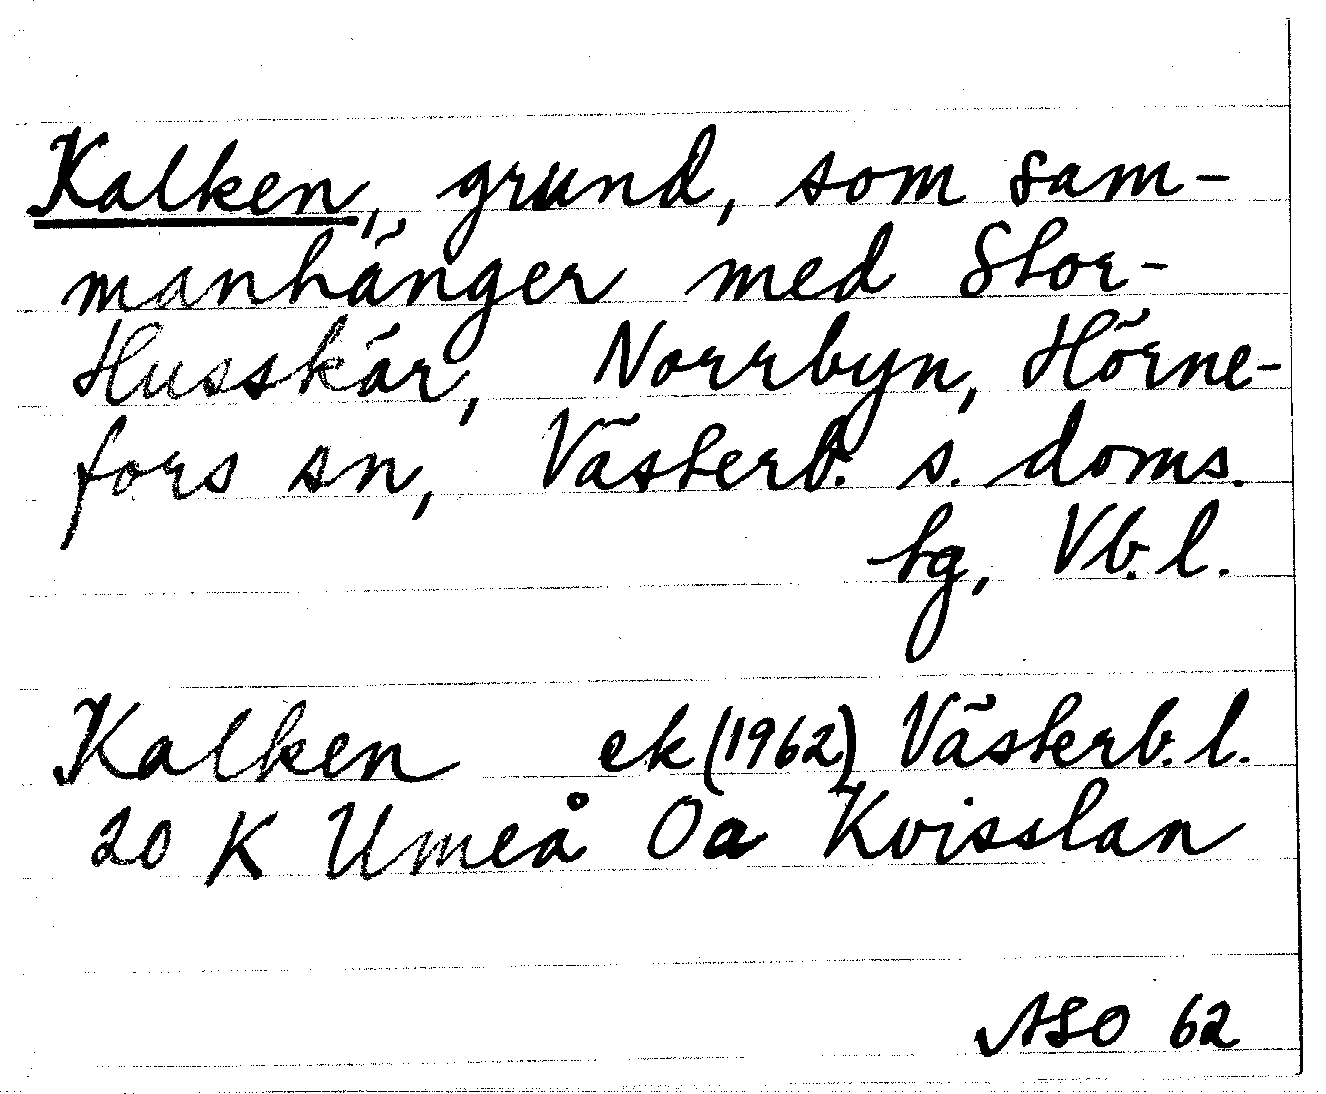 Kalken, grund, som sam-
manhänger med Stor-
Husskär, Norrbyn, Hörne-
fors sn, Västerb. s. doms.
tg, Vb. l.
Kalken ek (1962) Västerb. l.
20 K Umeå Oa Kvisslan
ASO 62